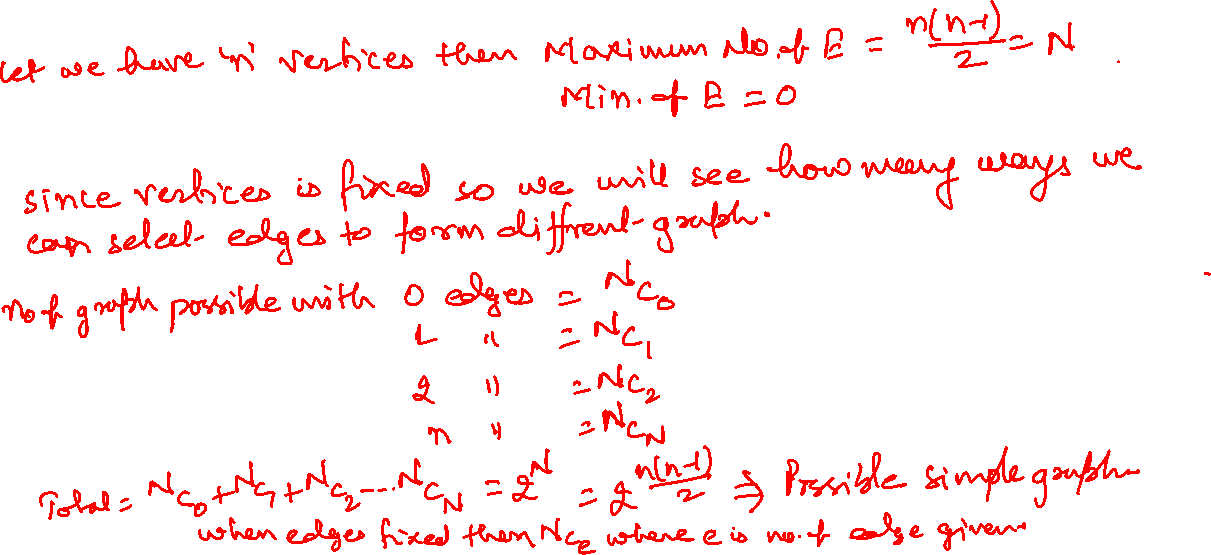 let we have 'n' vertices then Maximum No. of E = n(n-1)/2 = N
Min. of E = 0
since vertices is fixed so we will see how many ways we
can select edges to form diffrent graph.
No of graph possible with 0 edges = NC0
1 " = NC1
2 " = NC2
n " = NCN
Total = NC0 + NC1 + NC2 --- NCN = 2^N = 2^n(n-1)/2 ⇒ Possible simple graph
when edges fixed then NCe where e is no. of edge given